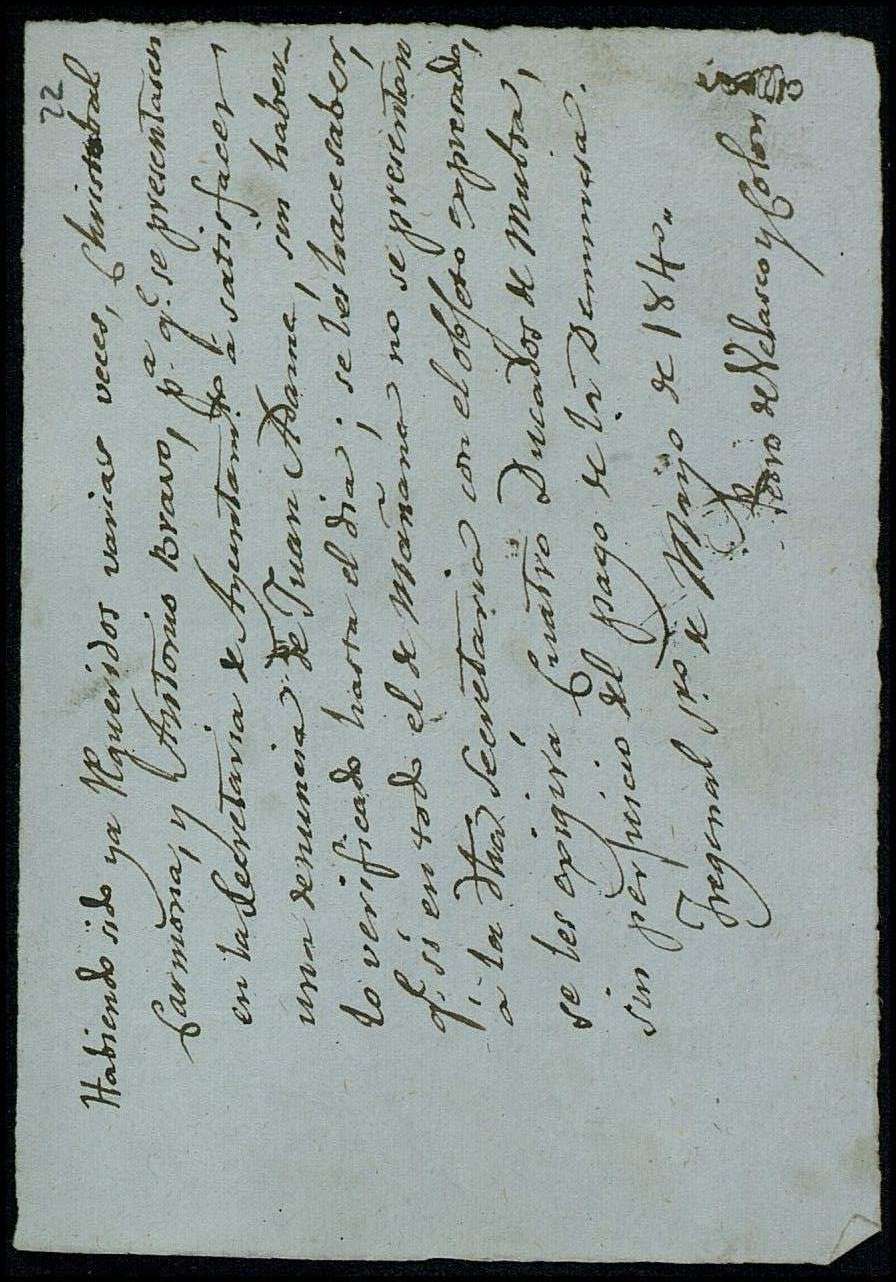 22
Habiendo sido ya Requeridos varias veces, Christobal
Carmona, y Antonio Bravo, pª. qᵉ. se presentasen
en la Secretaria de Ayuntamtᵒ á satisfacer
una denuncia de Juan Adame, sin haber-
lo verificado hasta el dia; se les hace saber,
qᵉ. si en todo el de Mañana no se presentan
a la dha Secretaria con el objeto expresado,
se les exigirá Cuatro Ducados de Multa,
sin perjuicio del pago de la Denuncia.
Fregenal 1ʳᵒ de Mayo de 1840.,
Pedro de Velasco y Colon